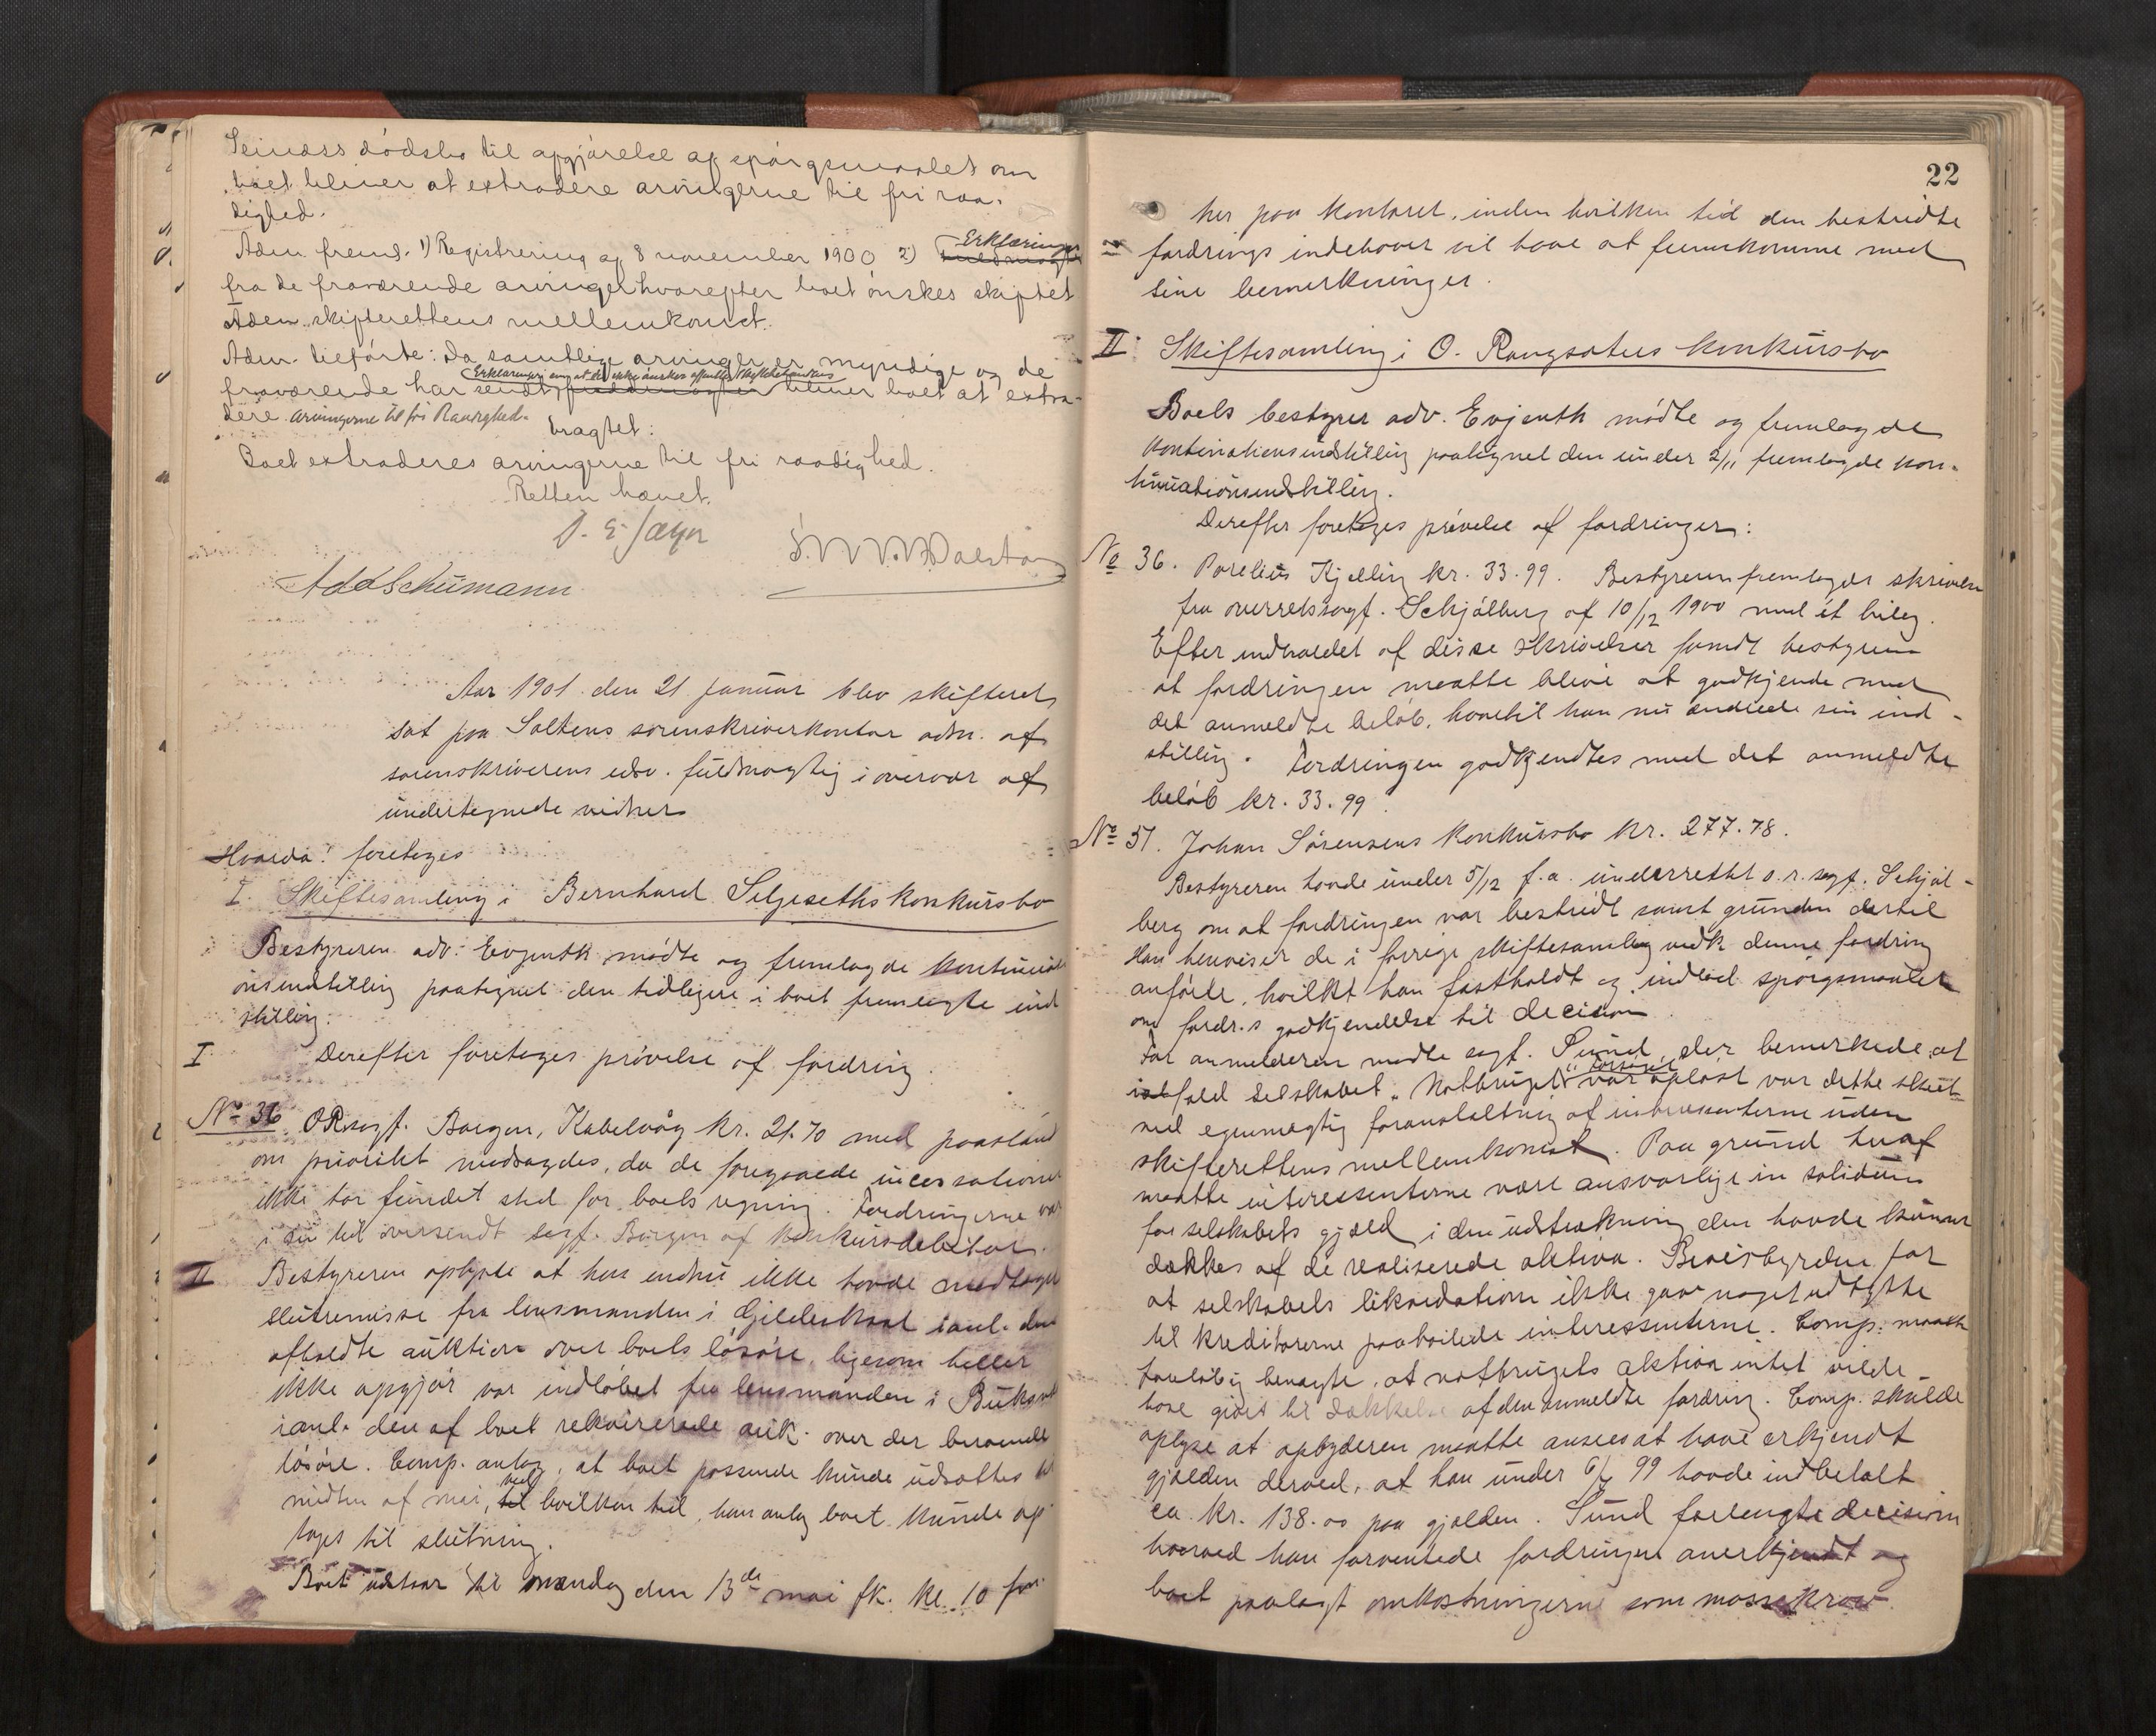 dødsbo til afgjørelse af spørgsmaalet om
boet bliver at extradere arvingerne til fri raa-
dighed.
Adm. freml. 1) Registrering af 8 november 1900 2) Erklæringer
fra de fraværende arvinger hvorefter boet ønskes skiftet
uden skifterettens mellemkomst.
Adm. tilførte: Da samtlige arvinger er myndige og de
fraværende har sendt Erklæringer om at de ikke ønsker offentlig Skiftebehandling bliver boet at extra-
dere arvingerne til fri Raadighed.
bragtet:
Boet extraderes arvingerne til fri raadighed.
Retten hævet.
Add Schumann
Aar 1901 den 21 januar blev skifteret
sat paa Saltens sorenskriverkontor adm. af
sorenskriverens edsv. fuldmægtig i overvær af
undertegnede vidner
Hvorda! foretoges
I. Skiftesamling i Bernhard Seljeseths konkursbo
Bestyreren adv. Evjenth mødte og fremlagde kontinuati-
onsindstilling paategnet den tidligere i boet fremlagte ind
stilling.
I Derefter foretoges prøvelse af fordring.
No 36 ORsagf. Borgen, Kabelvåg kr. 21.70 med paastand
om prioritet nedsagdes, da de foregaaede incassationer
ikke har fundet sted for boets regning. Fordringerne var
i sin tid oversendt sagf. Borgen af konkursdebitor.
II Bestyreren oplyste at han endnu ikke havde modtaget
slutremisse fra lensmanden i Gildeskaal ianl. den
afholdte auktion over boets løsøre, ligesom heller
ikke opgjør var indløbet fra lensmanden i
ianl. den af boet rekvirerede auk. over der beroende
løsøre. Comp. antog, at boet passende kunde udsættes til
midten af mai, ved hvilken tid, han antog boet kunde op
tages til slutning.
Boet udstaar til mandag den 13de mai fk. kl. 10 form.
22
her paa kontoret, inden hvilken tid den bestridte
fordrings indehaver vil have at fremkomme med
sine bemerkninger.
II. Skiftesamling i O. Rangsætus konkursbo
Boets bestyrer adv. Evjenth mødte og fremlagde
kontinationsindstilling paategnet den under 2/11 fremlagde kon-
tinuationsindstilling.
Derefter foretoges prøvelse af fordringer:
No 36. Parelius Kjelling kr. 33.99. Bestyreren fremlagde skrivelse
fra overretssagf. Schjølberg af 10/12 1900 med ét bilag.
Efter indholdet af disse skrivelser fandt bestyreren
at fordringen maatte blive at godkjende med
det anmeldte beløb, hvortil han nu ændrede sin ind-
stilling. Fordringen godkjendtes med det anmeldte
beløb kr. 33.99.
No 51. Johan Sørensens konkursbo kr. 277.78.
Bestyreren havde under 5/12 f.a. underrettet o.r.sagf. Schjøl-
berg om at fordringen var bestridt samt grunden dertil
Han henviser de i forrige skiftesamling vedk denne fordring
anførte, hvilket han fastholdt og indlod spørgsmaalet
om fordr.s godkjendelse til decision.
For anmelderen mødte sagf. Sund, der bemerkede, at
ifald selskabet "Notbruget Forsøget" var opløst var dette skeet
ved egenmægtig foranstaltning af interessenterne uden
skifterettens mellemkomst. Paa grund heraf
maatte interessenterne være ansvarlige in solidum
for selskabets gjæld i den udstrækning den havde kunnet
dækkes af de realiserede aktiva. Bevisbyrden for
at selskabets likvidation ikke gav noget udbytte
til kreditorerne paahvilede interessenterne. Comp. maatte
foreløbig benægte, at notbrugets aktiva intet vilde
have givet til dækkelse af den anmeldte fordring. Comp. skulde
oplyse at opbyderen maatte ansees at have erkjendt
gjælden derved, at han under 6/7 99 havde indbetalt
ca kr. 138.00 paa gjælden. Sund forlangte decision
hvorved han forventede fordringen anerkjendt og
boet paalagt omkostningerne som massekrav.